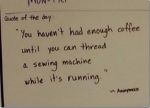 Quote of the day
"You haven't had enough coffee
until you can thread
a sewing machine
while it's running."
~ Anonymous